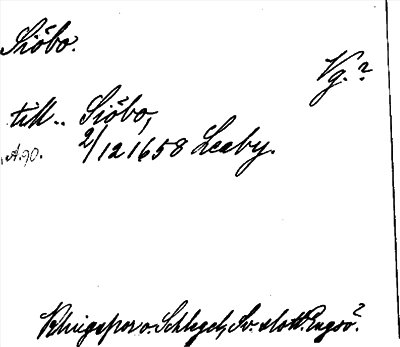 Siöbo.
Vg.?
till.. Siöbo,
A.90. 2/12 1658 Leaby.
Klingspor o. Schlegel, Sv. slott.